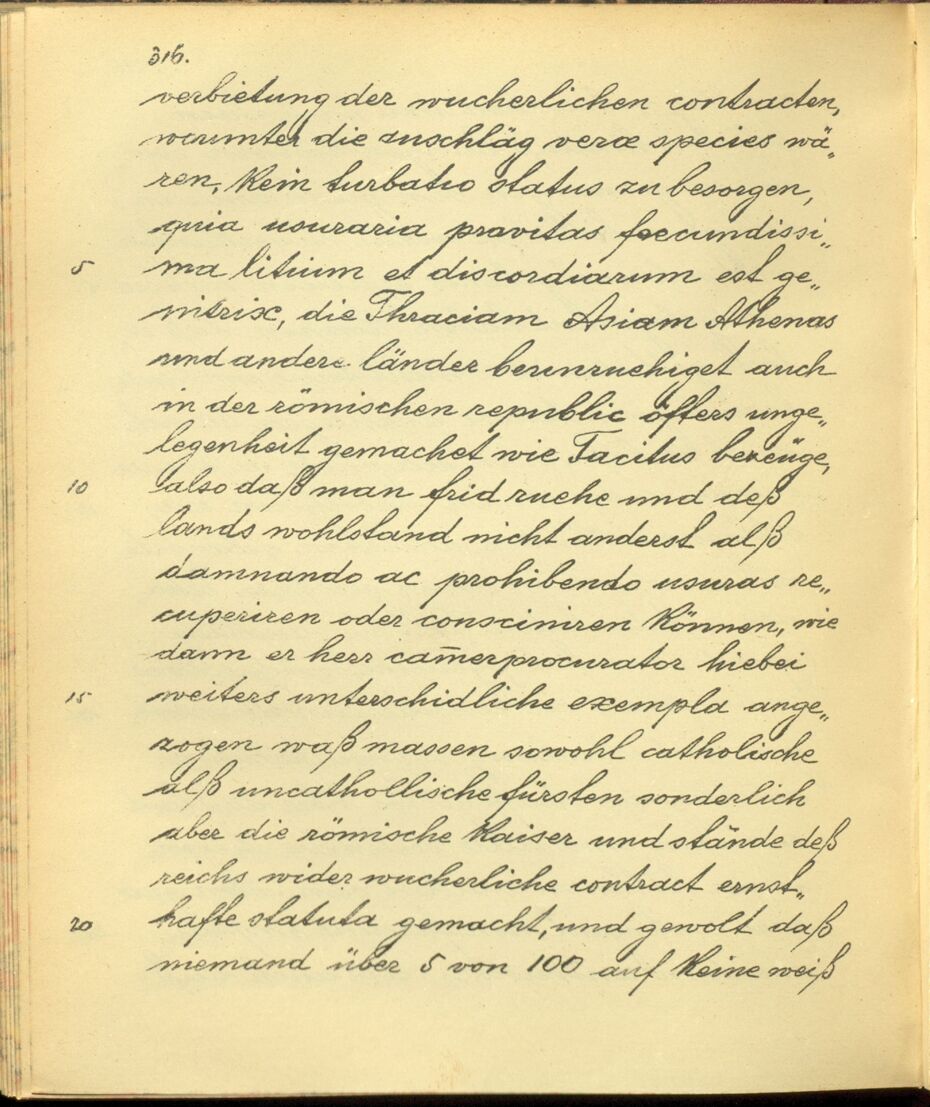 316.
verbietung der wucherlichen contracten,
worunter die anschläg veræ species wä„
ren, kein turbatio status zu besorgen,
quia usuraria pravitas foecundissi„
5 ma litium et discordiarum est ge„
nitrix, die Thraciam Asiam Athenas
und andere länder berunruehiget auch
in der römischen republic öfters unge„
legenheit gemachet wie Tacitus bezeüge,
10 also daß man frid ruehe und deß
lands wohlstand nicht anderst alß
damnando ac prohibendo usuras re„
cuperiren oder consciniren können, wie
dann er herr cam̄erprocurator hiebei
15 weiters unterschidliche exempla ange„
zogen waß massen sowohl catholische
alß uncathollische fürsten sonderlich
aber die römische kaiser und stände deß
reichs wider wucherliche contract ernst„
20 hafte statuta gemacht, und gewolt daß
niemand über 5 von 100 auf keine weiß